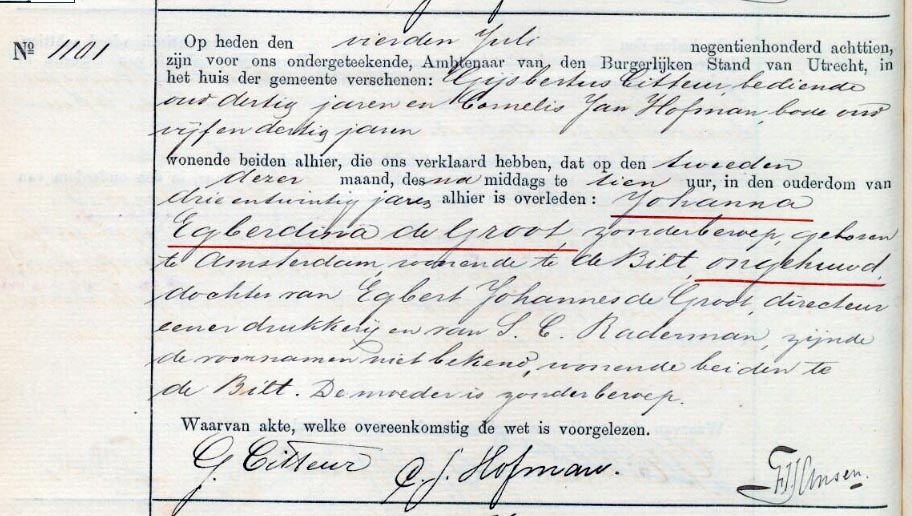 Nº 1101
Op heden den vierden Juli negentienhonderd achttien,
zijn voor ons ondergeteekende, Ambtenaar van den Burgerlijken Stand van Utrecht, in
het huis der gemeente verschenen: Gijsbertus Citteur, bediende
oud dertig jaren en Cornelis Jan Hofman, bode oud
vijf en dertig jaren
wonende beiden alhier, die ons verklaard hebben, dat op den tweeden
dezer maand, des na middags te tien uur, in den ouderdom van
drie en twintig jaren alhier is overleden: Johanna
Egberdina de Groot, zonder beroep, geboren
te Amsterdam, wonende te de Bilt, ongehuwd,
dochter van Egbert Johannes de Groot, directeur
eener drukkerij en van S. C. Raderman, zijnde
de voornamen niet bekend, wonende beiden te
de Bilt. De moeder is zonder beroep.
Waarvan akte, welke overeenkomstig de wet is voorgelezen.
G. Citteur C. J. Hofman.